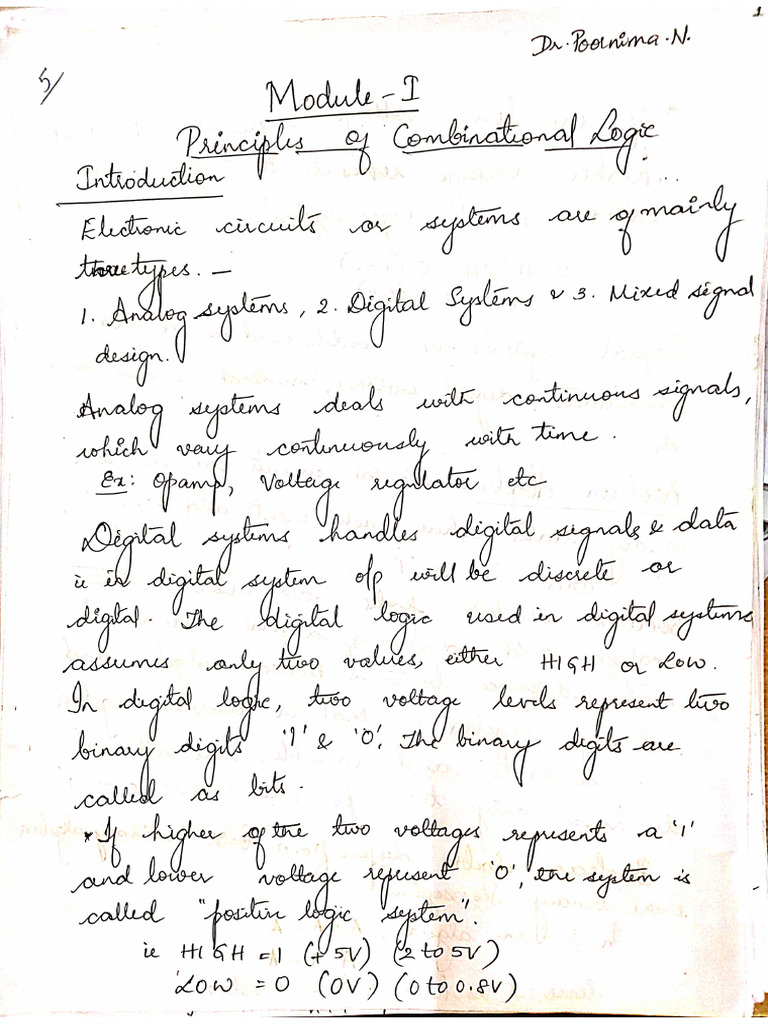 1
Dr. Poornima. N.
5/
Module - I
Principles of Combinational Logic
Introduction
Electronic circuits or systems are of mainly
three types. —
1. Analog systems, 2. Digital Systems & 3. Mixed signal
design.
Analog systems deals with continuous signals,
which vary continuously with time.
Ex: Opamp, Voltage regulator etc
Digital systems handles digital signals & data
ie in digital system o/p will be discrete or
digital. The digital logic used in digital systems
assumes only two values, either HIGH or LOW.
In digital logic, two voltage levels represent two
binary digits '1' & '0'. The binary digits are
called as bits.
* If higher of the two voltages represents a '1'
and lower voltage represent '0', the system is
called "positive logic system".
ie HIGH = 1 (+5V) (2 to 5V)
LOW = 0 (0V) (0 to 0.8V)